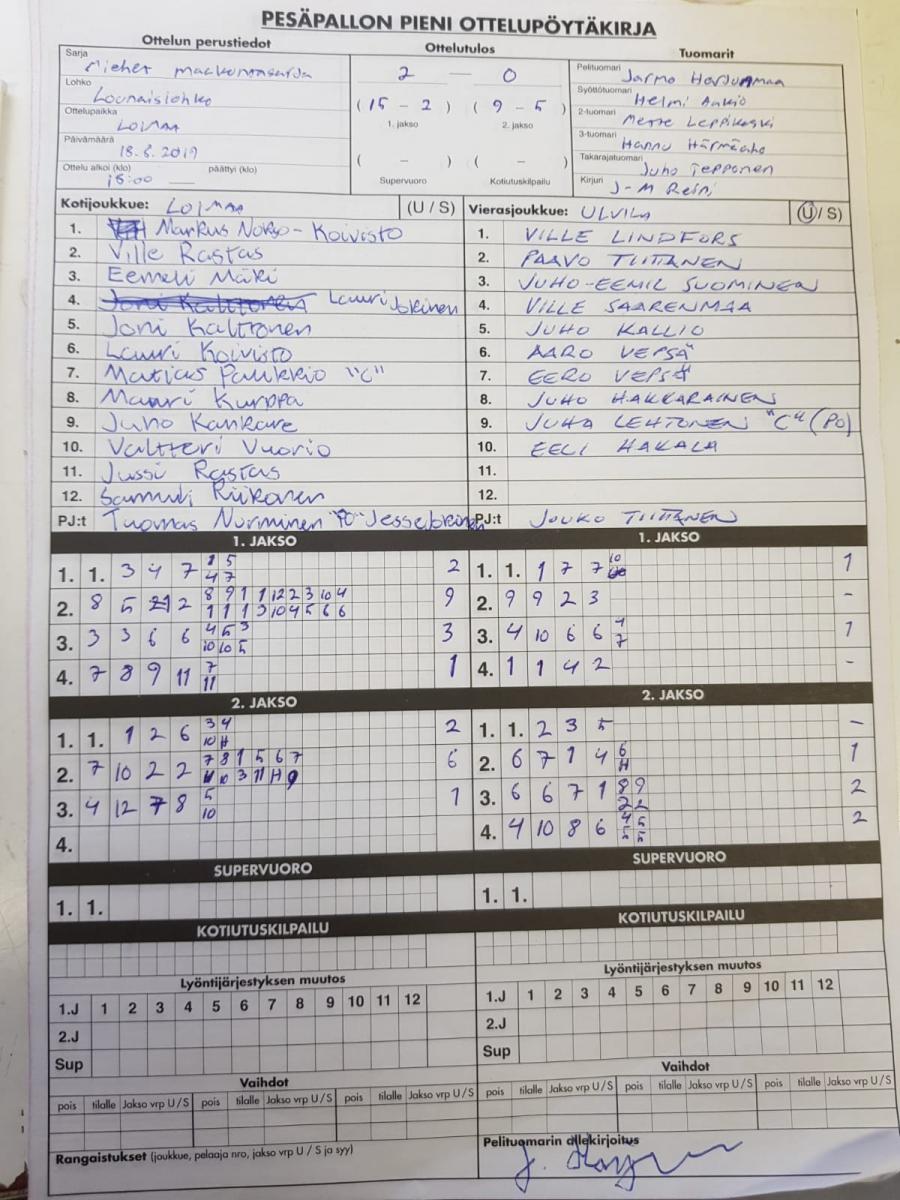 PESÄPALLON PIENI OTTELUPÖYTÄKIRJA
Ottelun perustiedot
Sarja
Miehet maakuntasarja
Lohko
Lounaislohko
Ottelupaikka
LOIMAA
Päivämäärä
18.8.2019
Ottelu alkoi (klo) päättyi (klo)
18:00
Ottelutulos
2 – 0
(15 – 2) (9 – 5)
1. jakso 2. jakso
( – ) ( – )
Supervuoro Kotiutuskilpailu
Tuomarit
Pelituomari Jarmo Harjunmaa
Syöttötuomari Helmi Aukio
2-tuomari Merre Leppikoski
3-tuomari Hannu Härmäaho
Takarajatuomari Juho Tepponen
Kirjuri J-M Reini
Kotijoukkue: LOIMAA (U / S)
1. Markus Norso-Koivisto
2. Ville Rastas
3. Eemeli Mäki
4. Lauri Jokinen
5. Joni Kalttonen
6. Lauri Koivisto
7. Matias Paukkio "C"
8. Mauri Kurppa
9. Juho Kankare
10. Valtteri Vuorio
11. Jussi Rastas
12. Samuli Riikonen
PJ:t Tuomas Nurminen "PO" Jesse Jokinen
Vierasjoukkue: ULVILA (U / S)
1. VILLE LINDFORS
2. PAAVO TIITTANEN
3. JUHO-EEMIL SUOMINEN
4. VILLE SAARENMAA
5. JUHO KALLIO
6. AARO VEPSÄ
7. EERO VEPSÄ
8. JUHO HAKKARAINEN
9. JUHA LEHTONEN "C" (PO)
10. EELI HAKALA
11.
12.
PJ:t JOUKO TIITTANEN
1. JAKSO
1. 1. 3 4 7 1 5 2
4 7
2. 8 5 2 8 9 1 1 12 2 3 10 4 9
1 1 1 3 10 4 5 6 6
3. 3 3 6 6 4 5 3 3
10 10 5
4. 7 8 9 11 7 1
11
1. JAKSO
1. 1. 1 7 7 10 1
2. 9 9 2 3 -
3. 4 10 6 6 4 1
7
4. 1 1 4 2 -
2. JAKSO
1. 1. 1 2 6 3 4 2
10 H
2. 7 10 2 2 7 8 1 5 6 7 6
10 3 11 H 9
3. 4 12 7 8 5 1
10
4.
2. JAKSO
1. 1. 2 3 5 -
2. 6 7 1 4 6 1
H
3. 6 6 7 1 8 9 2
2 2
4. 4 10 8 6 4 5 2
5 5
SUPERVUORO
1. 1.
SUPERVUORO
1. 1.
KOTIUTUSKILPAILU
KOTIUTUSKILPAILU
Lyöntijärjestyksen muutos
1.J 1 2 3 4 5 6 7 8 9 10 11 12
2.J
Sup
Lyöntijärjestyksen muutos
1.J 1 2 3 4 5 6 7 8 9 10 11 12
2.J
Sup
Vaihdot
pois tilalle Jakso vrp U / S pois tilalle Jakso vrp U / S pois tilalle Jakso vrp U / S
Vaihdot
pois tilalle Jakso vrp U / S pois tilalle Jakso vrp U / S pois tilalle Jakso vrp U / S
Rangaistukset (joukkue, pelaaja nro, jakso vrp U / S ja syy)
Pelituomarin allekirjoitus